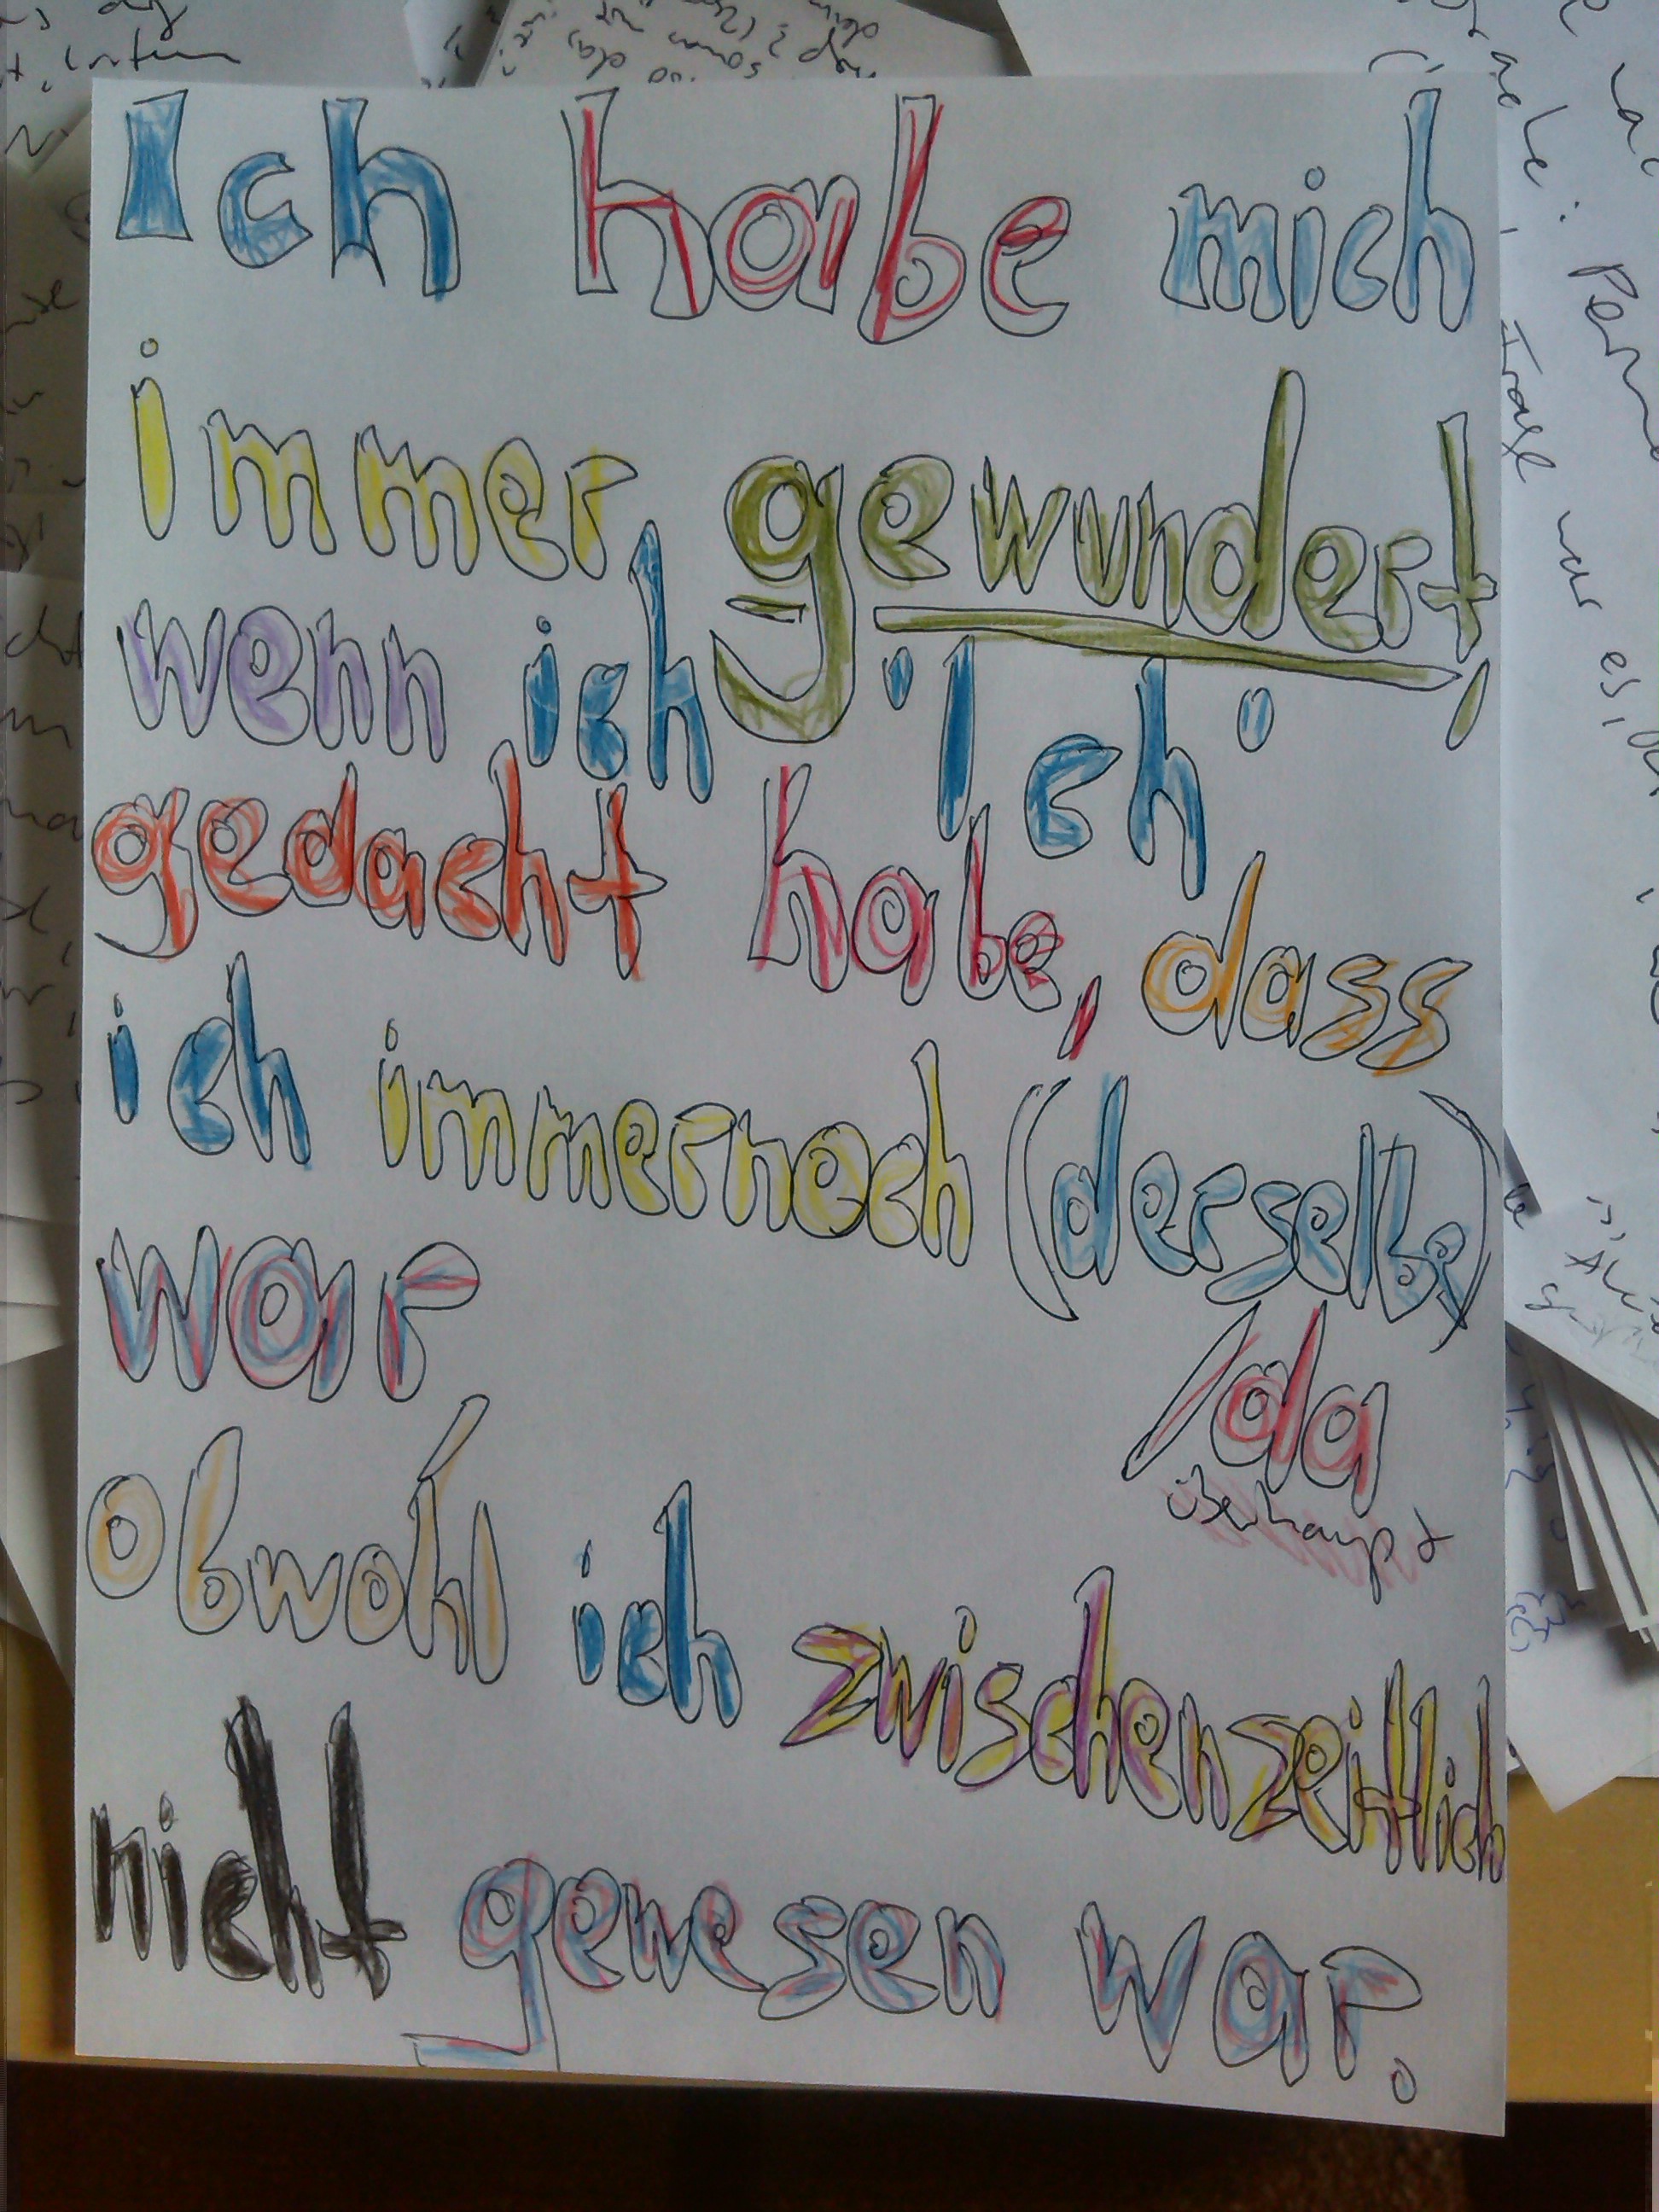 Ich habe mich
immer gewundert,
wenn ich 'Ich'
gedacht habe, dass
ich immernoch (derselbe)
/da
überhaupt
war,
obwohl ich zwischenzeitlich
nicht gewesen war.